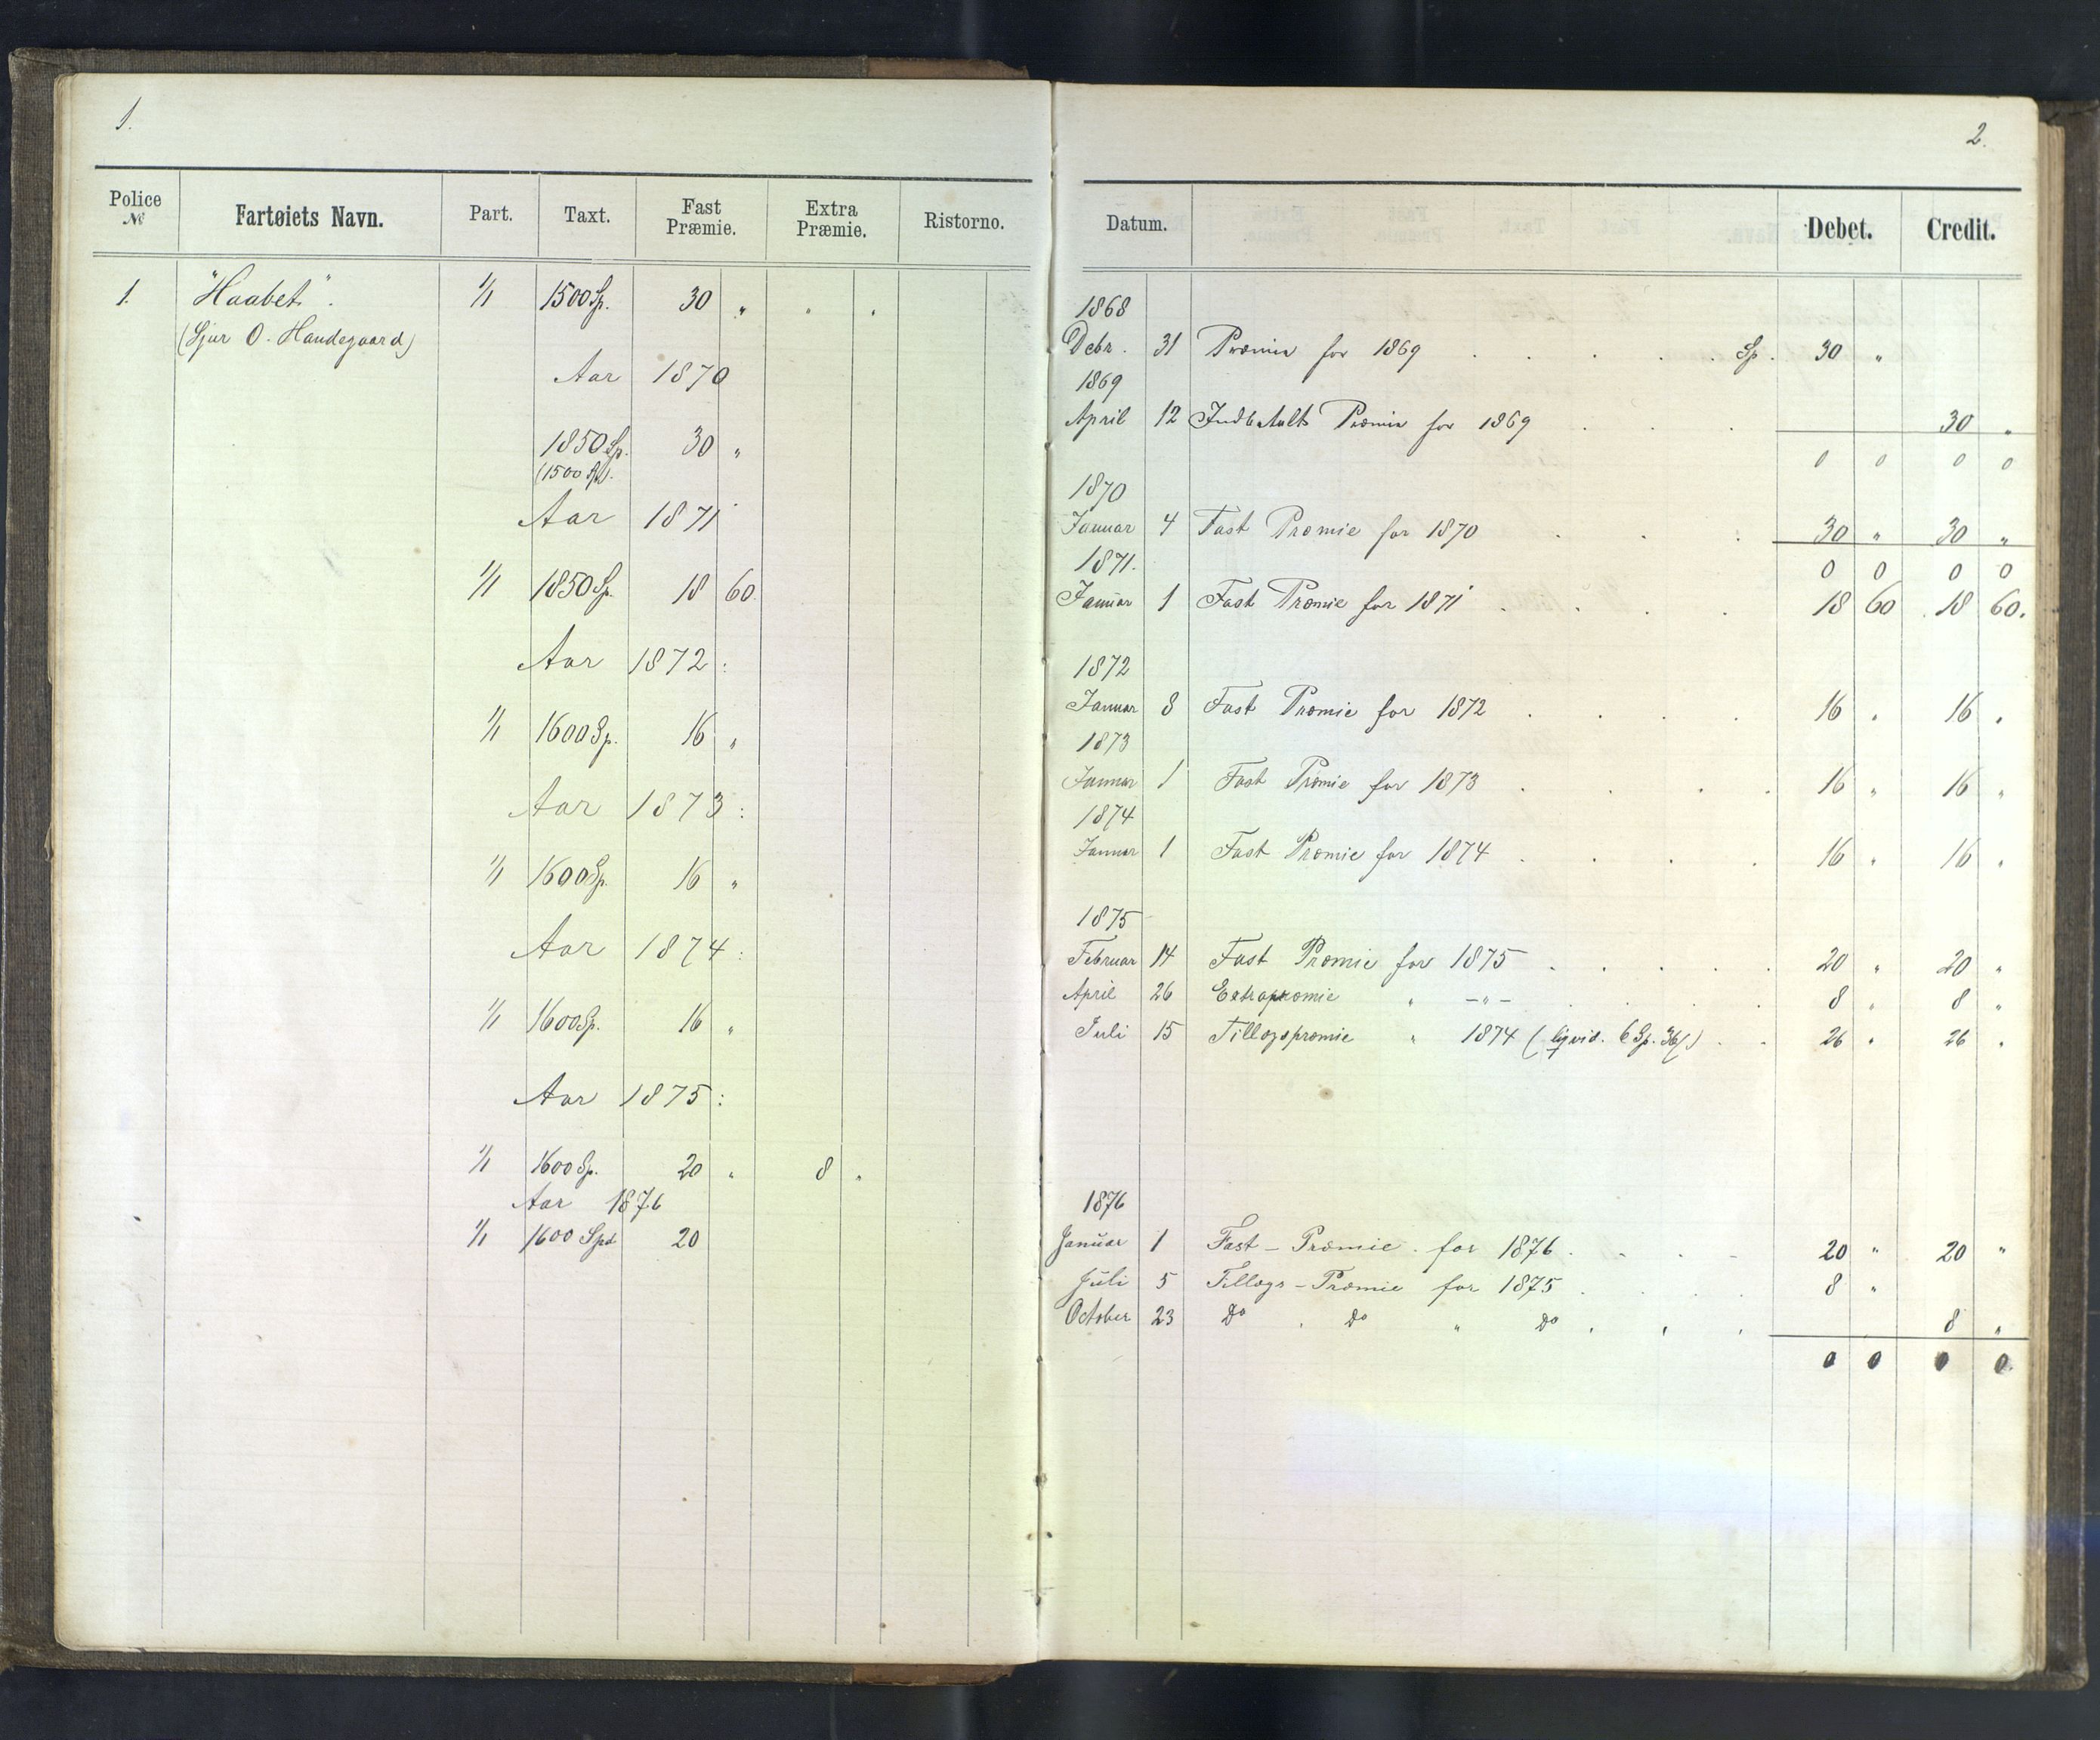 1.
Police № Fartøiets Navn. Part. Taxt. Fast Præmie. Extra Præmie. Ristorno.
1. "Haabet". 1/1 1500 Sp. 30 " " "
(Sjur O. Handegaard)
Aar 1870
1850 Sp. 30 "
(1500 Sp).
Aar 1871
1/1 1850 Sp. 18 60.
Aar 1872:
1/1 1600 Sp. 16 "
Aar 1873:
1/1 1600 Sp. 16 "
Aar 1874:
1/1 1600 Sp. 16 "
Aar 1875:
1/1 1600 Sp. 20 " 8 "
Aar 1876
1/1 1600 Spd 20
2.
Datum. Debet. Credit.
1868
Debr. 31 Præmie for 1869 . . . . . Sp. 30 "
1869
April 12 Indbetalt Præmie for 1869 . . . 30 "
0 0 0 0
1870
Januar 4 Fast Præmie for 1870 . . . 30 " 30 "
1871. 0 0 0 0
Januar 1 Fast Præmie for 1871 . . . . 18 60 18 60.
1872
Januar 8 Fast Præmie for 1872 . . . . 16 " 16 "
1873
Januar 1 Fast Præmie for 1873 . . . . 16 " 16 "
1874
Januar 1 Fast Præmie for 1874 . . . . 16 " 16 "
1875
Februar 14 Fast Præmie for 1875 . . . . . 20 " 20 "
April 26 Extrapræmie " -"- . . . . 8 " 8 "
Juli 15 Tillægspræmie " 1874 (liqvid. 6 Sp. 36 s) . . 26 " 26 "
1876
Januar 1 Fast-Præmie for 1876 . . . - 20 " 20 "
Juli 5 Tillægs-Præmie for 1875 . . . . 8 "
October 23 Do . Do " Do . . . 8 "
0 0 0 0